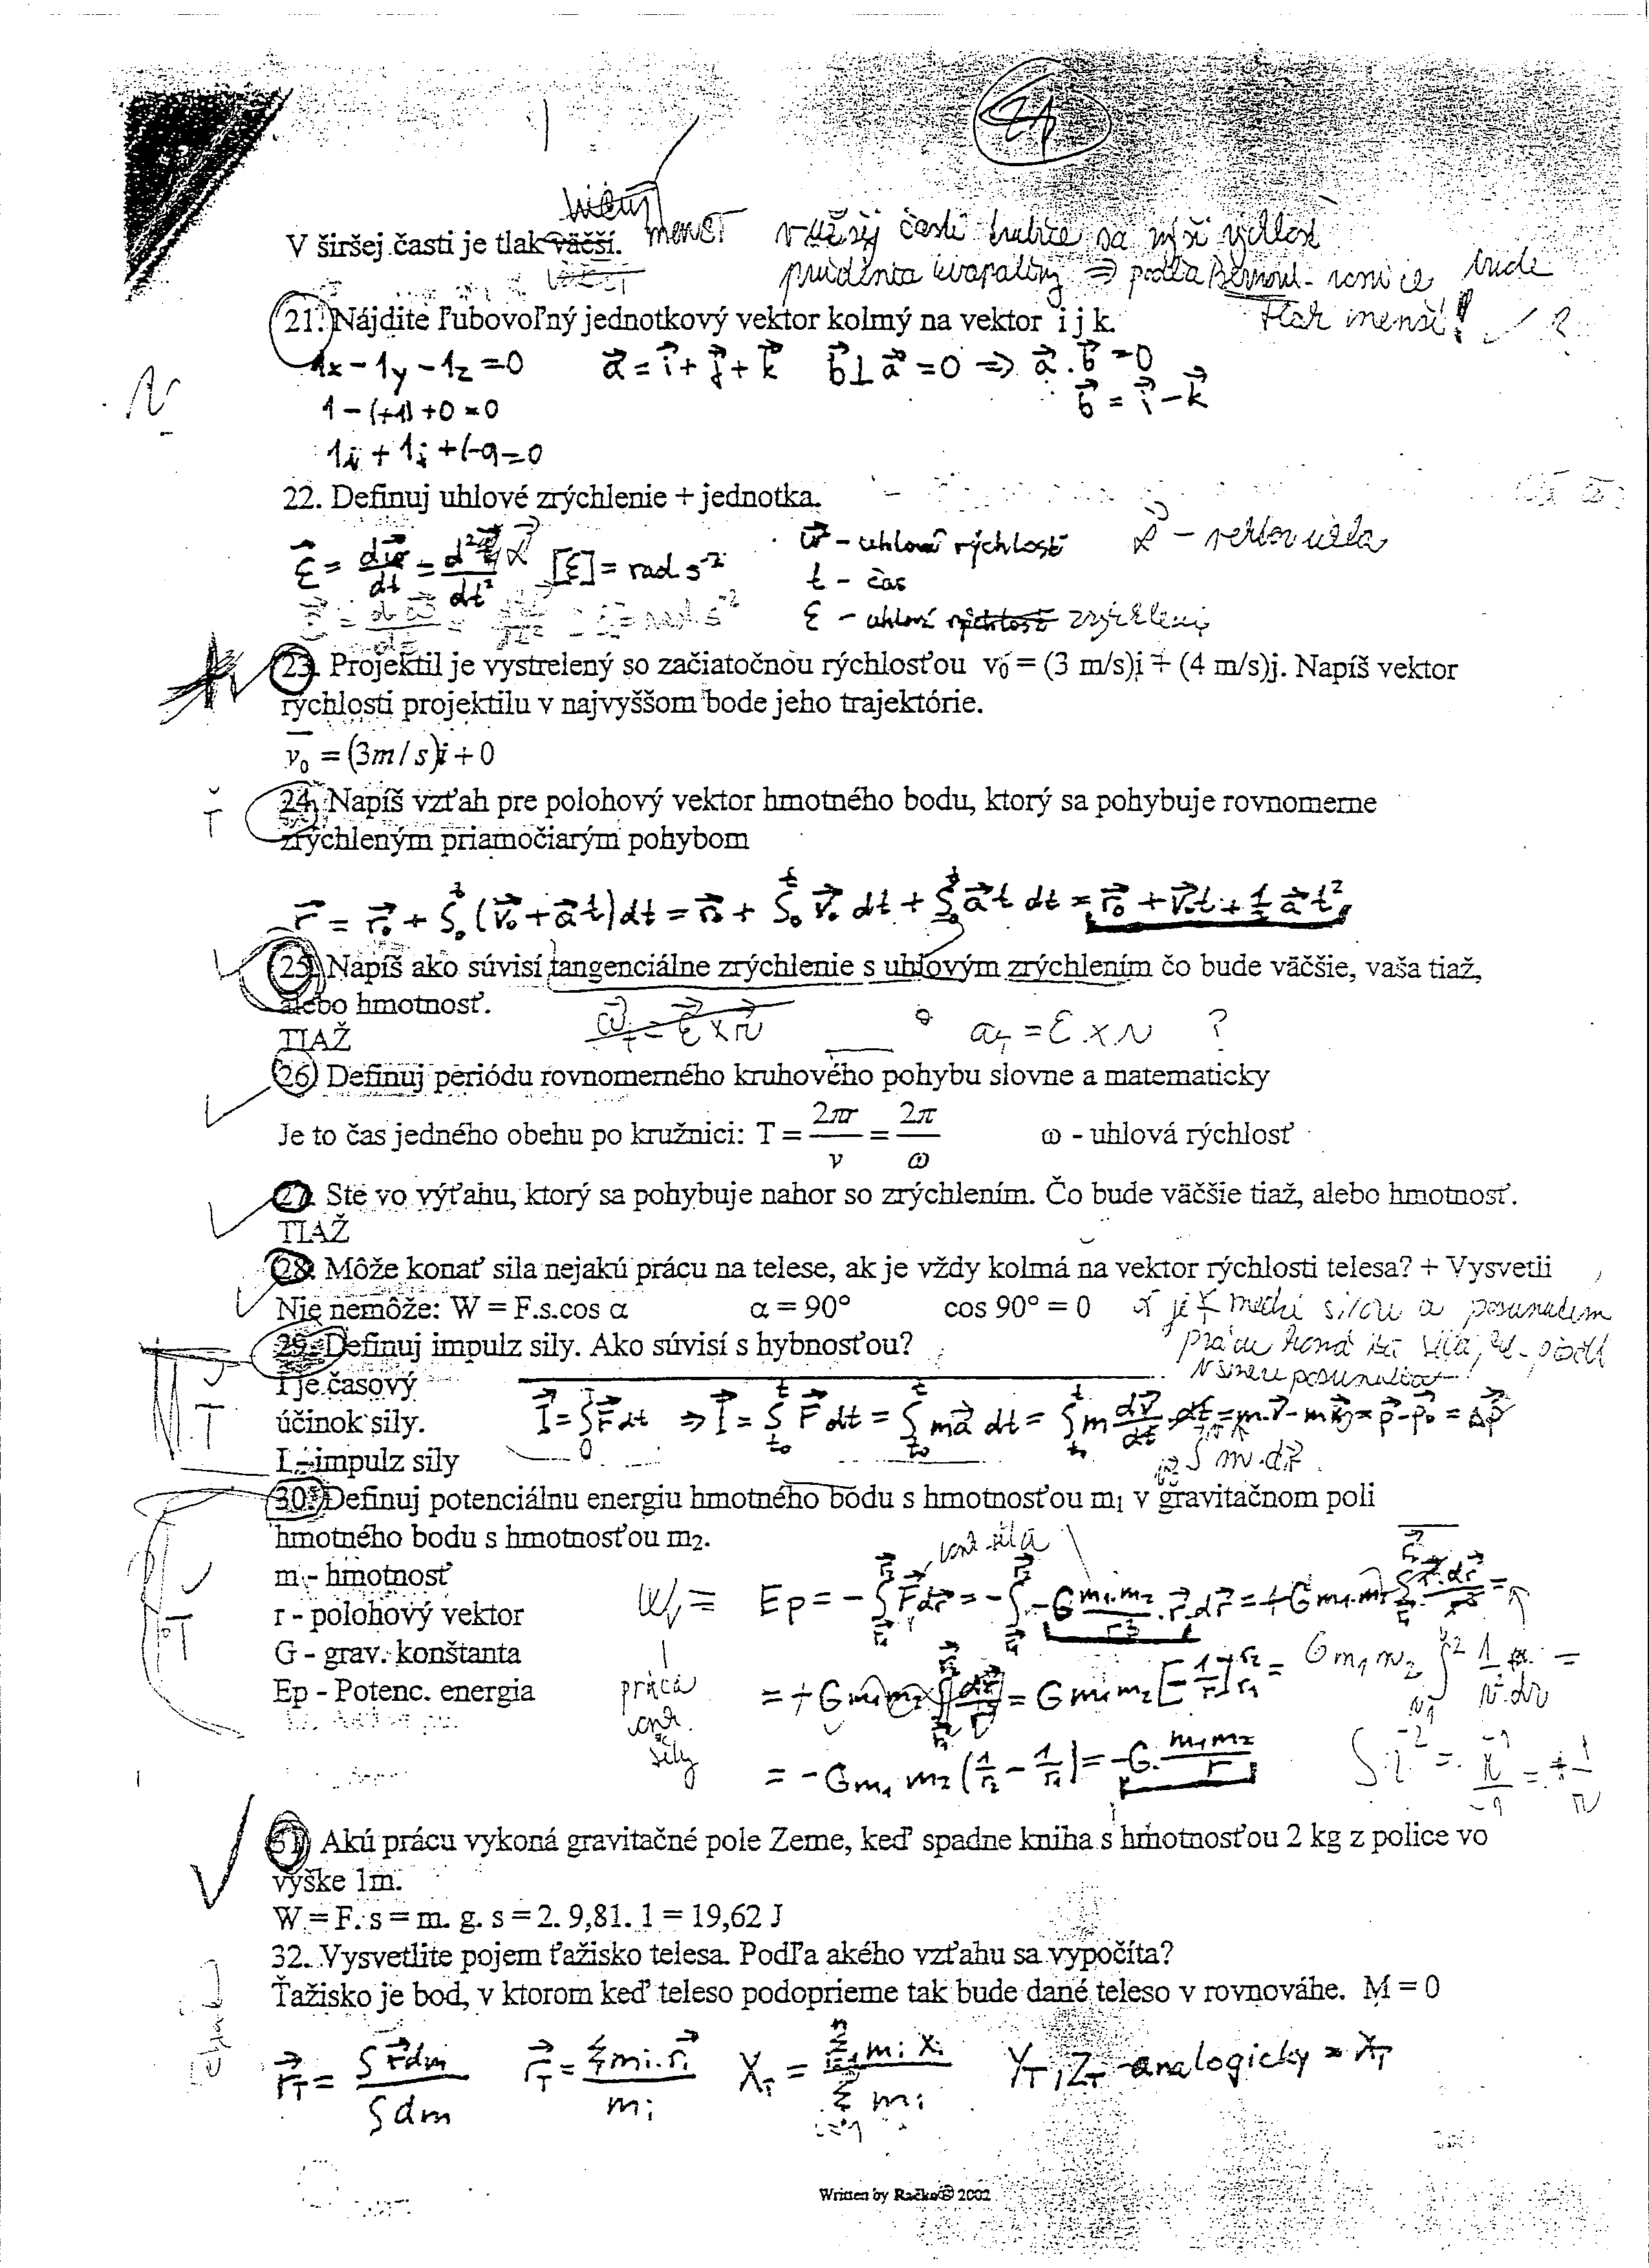 21
V širšej časti je tlak väčší. menší
v užšej časti trubice sa zvýši rýchlosť
prúdenia kvapaliny => podľa Bernoul. rovnice bude
tlak menší!
21. Nájdite ľubovoľný jednotkový vektor kolmý na vektor i j k.
1x - 1y - 1z = 0   a⃗ = i⃗ + j⃗ + k⃗   b⃗ ⊥ a⃗ = 0 => a⃗ . b⃗ = 0
b⃗ = i⃗ - k⃗
1 - (+1) + 0 = 0
22. Definuj uhlové zrýchlenie + jednotka.
ε⃗ = dω⃗/dt = d²α⃗/dt²   [ε] = rad s⁻²
ω⃗ - uhlová rýchlosť   α⃗ - vektor uhla
t - čas
ε - uhlové rýchlosť zrýchlenie
23. Projektil je vystrelený so začiatočnou rýchlosťou v₀ = (3 m/s)i + (4 m/s)j. Napíš vektor
rýchlosti projektilu v najvyššom bode jeho trajektórie.
v₀ = (3m / s)i + 0
24. Napíš vzťah pre polohový vektor hmotného bodu, ktorý sa pohybuje rovnomerne
zrýchleným priamočiarým pohybom
r⃗ = r⃗₀ + ∫₀ᵗ (v⃗₀ + a⃗t)dt = r⃗₀ + ∫₀ᵗ v⃗₀ dt + ∫₀ᵗ a⃗t dt = r⃗₀ + v⃗₀t + ½ a⃗t²
25. Napíš ako súvisí tangenciálne zrýchlenie s uhlovým zrýchlením čo bude väčšie, vaša tiaž,
alebo hmotnosť.
TIAŽ   a_T = ε x r ?
26. Definuj periódu rovnomerného kruhového pohybu slovne a matematicky
Je to čas jedného obehu po kružnici: T = 2πr/v = 2π/ω   ω - uhlová rýchlosť
27. Ste vo výťahu, ktorý sa pohybuje nahor so zrýchlením. Čo bude väčšie tiaž, alebo hmotnosť.
TIAŽ
28. Môže konať sila nejakú prácu na telese, ak je vždy kolmá na vektor rýchlosti telesa? + Vysvetli
Nie nemôže: W = F.s.cos α   α = 90°   cos 90° = 0   α je ∢ medzi silou a posunutím
prácu koná
v smere posunutia
29. Definuj impulz sily. Ako súvisí s hybnosťou?
I je časový
účinok sily.
I⃗ = ∫F⃗dt => I⃗ = ∫F⃗dt = ∫ma⃗ dt = ∫m dv⃗/dt dt = m.v⃗ - mv⃗₀ = p⃗ - p⃗₀ = Δp⃗
I - impulz sily
30. Definuj potenciálnu energiu hmotného bodu s hmotnosťou m₁ v gravitačnom poli
hmotného bodu s hmotnosťou m₂.
m - hmotnosť
r - polohový vektor
G - grav. konštanta
Ep - Potenc. energia
W = Ep = -∫F⃗dr⃗ = -∫ -G m₁.m₂/r³ . r⃗.dr⃗ = +G m₁.m₂ ∫ r⃗.dr⃗/r³ =
práca
sily
= +G m₁m₂ ∫ dr/r² = G m₁m₂ [-1/r] = G m₁ m₂
= -Gm₁ m₂ (1/r₂ - 1/r₁) = -G. m₁m₂/r
31. Akú prácu vykoná gravitačné pole Zeme, keď spadne kniha s hmotnosťou 2 kg z police vo
výške 1m.
W = F. s = m. g. s = 2. 9,81. 1 = 19,62 J
32. Vysvetlite pojem ťažisko telesa. Podľa akého vzťahu sa vypočíta?
Ťažisko je bod, v ktorom keď teleso podoprieme tak bude dané teleso v rovnováhe. M = 0
r⃗_T = ∫r⃗dm / ∫dm   r⃗_T = Σmᵢ.r⃗ᵢ / mᵢ   X_T = Σmᵢxᵢ / Σmᵢ   Y_T, Z_T - analogicky = X_T
Written by Račko© 2002